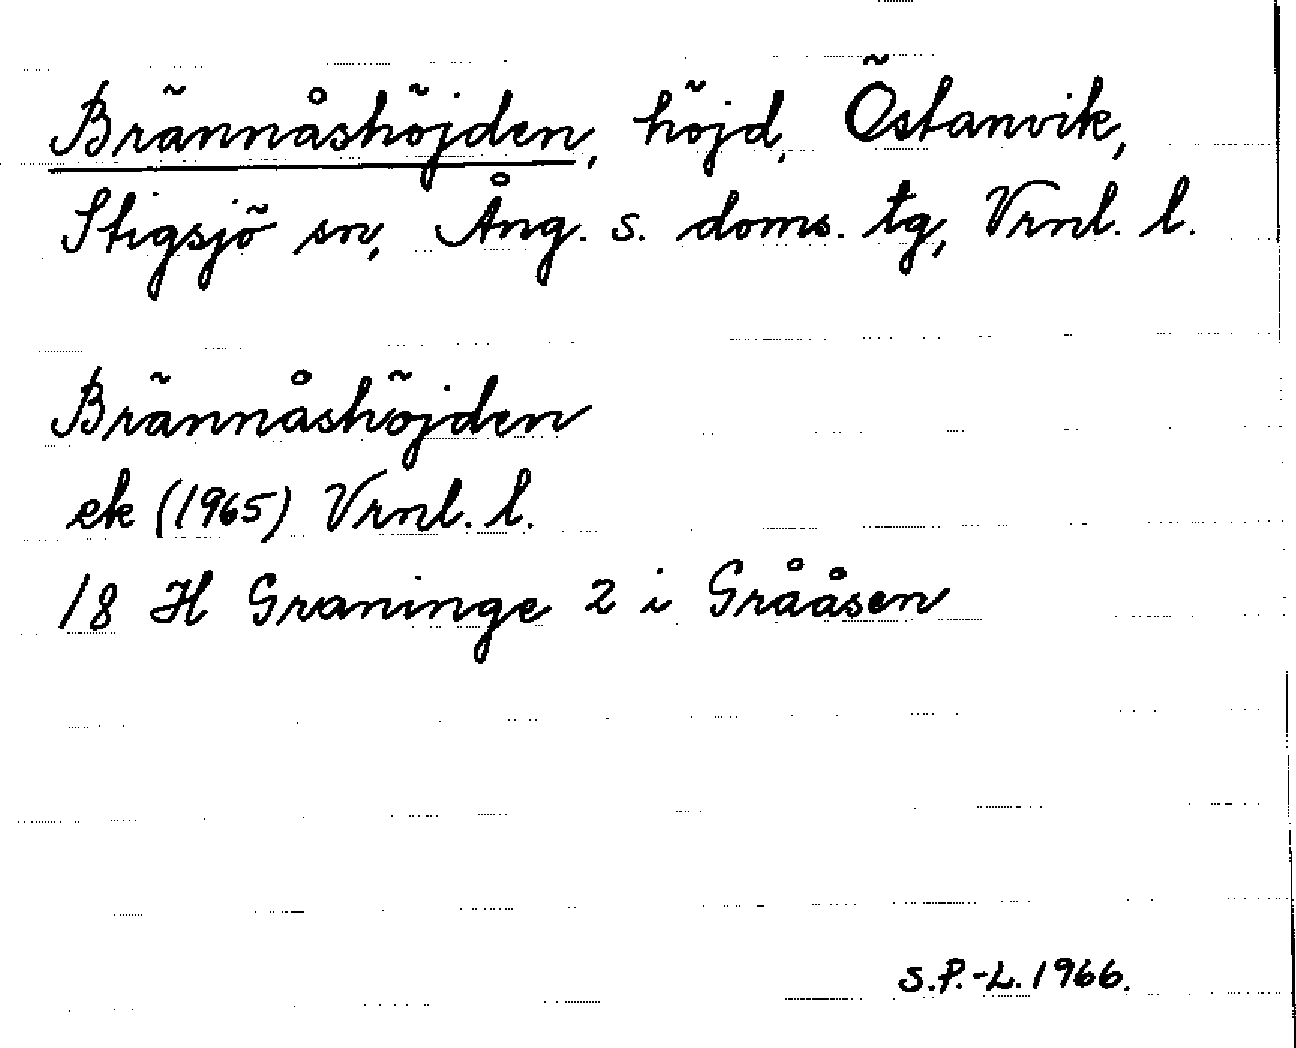 Brännåshöjden, höjd, Östanvik,
Stigsjö sn, Ång. s. doms. tg, Vrnl. l.
Brännåshöjden
ek (1965) Vrnl. l.
18 H Graninge 2 i Grååsen
S.P.-L. 1966.